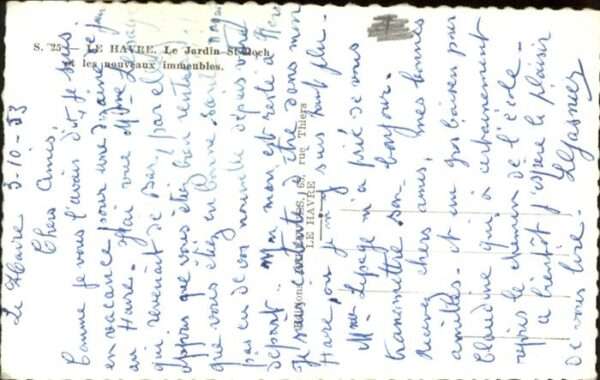 S. 25 LE HAVRE. Le Jardin St-Roch
et les nouveaux immeubles.
LE HAVRE
rue Thiers
Le Havre 3-10-53
Chers Amis,
Comme je vous l'avais dit, je suis
en vacance pour une dizaine de jours
au Havre. J'ai vue Mme Lepage
qui revenait de Bar, par elle j'ai
appris que vous étiez bien rentrés,
que vous étiez en bonne santé
pas eu de vos nouvelle depuis votre
départ. Mon mari est resté à
Je suis contente d'être dans mon
Havre, ou je suis
Mme Lepage m'a prié de vous
transmettre son bonjour.
Recevez chers amis, mes bonnes
amitiés. et un gros baiser pour
Claudine qui a certainement
repris le chemin de l'école -
a bientôt j'espère le plaisir
de vous lire